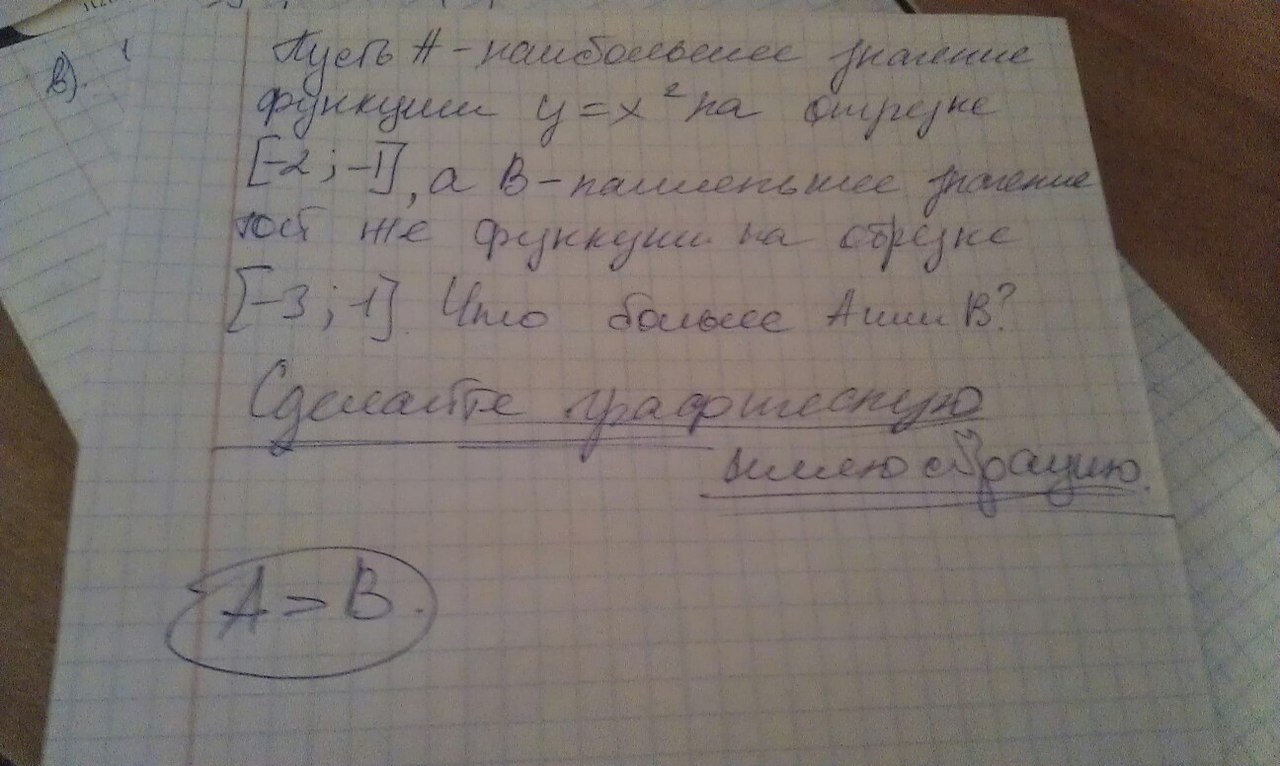 в).
Пусть А - наибольшее значение
функции y = x² на отрезке
[-2 ; -1], а В - наименьшее значение
той же функции на отрезке
[-3 ; 1]. Что больше А или В?
Сделайте графическую
иллюстрацию.
А > В.